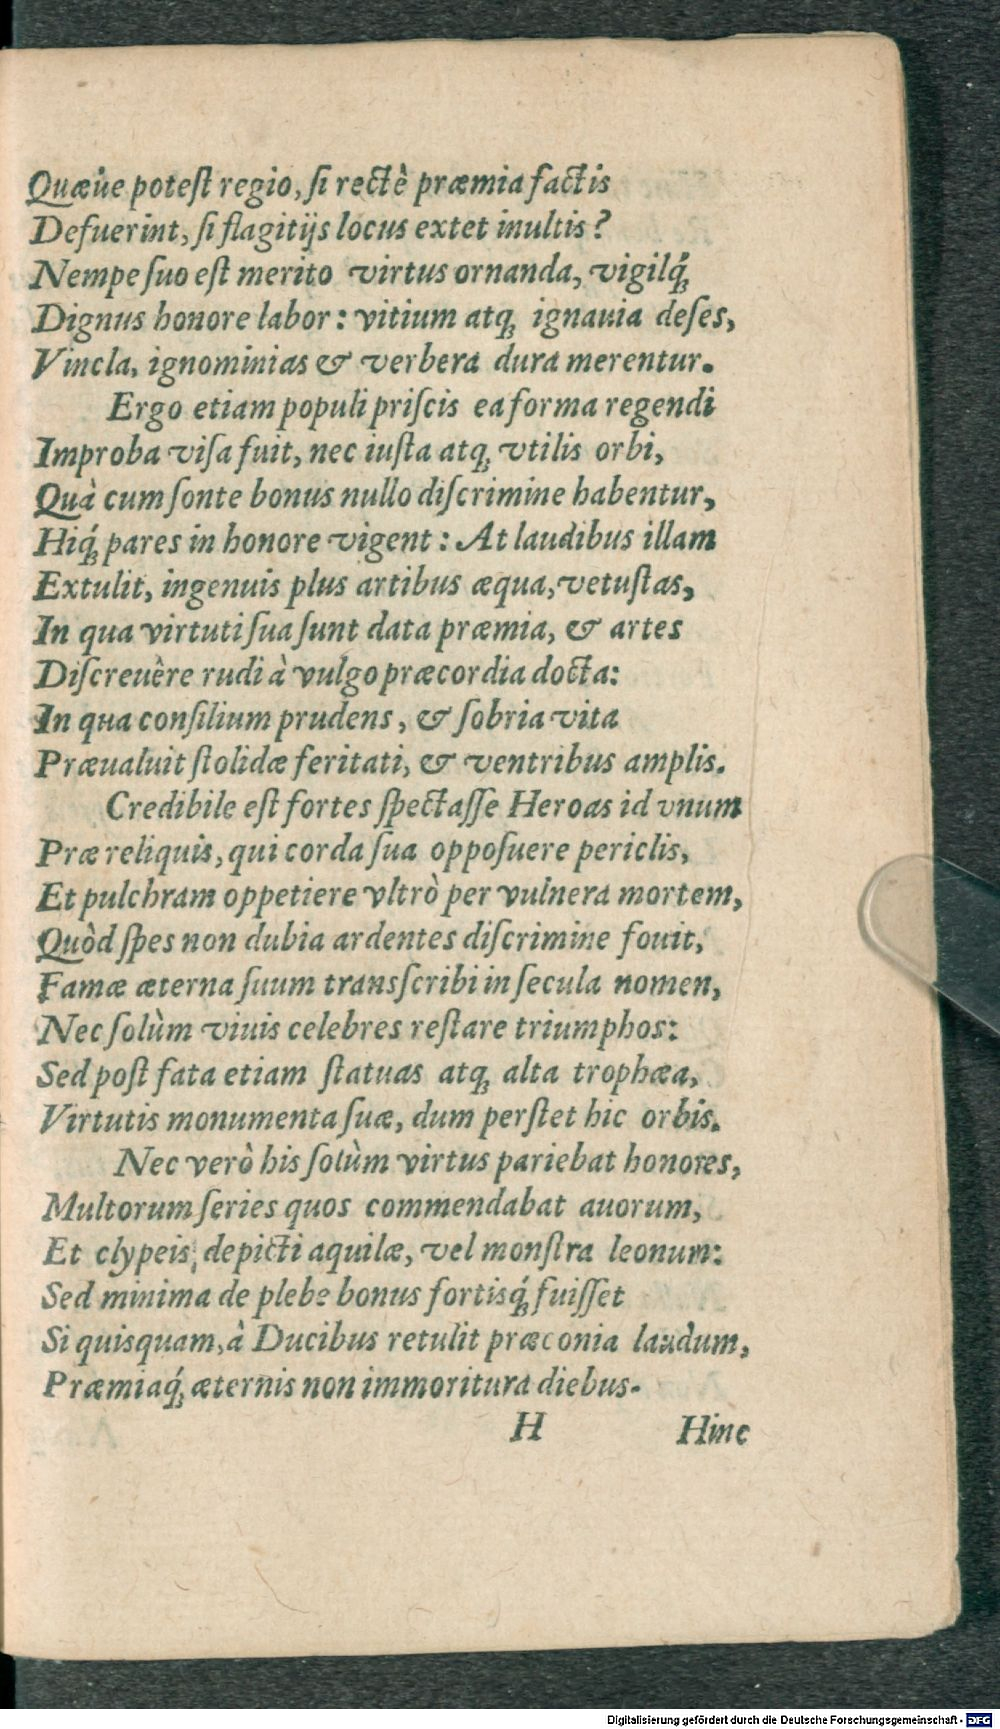 Quæue poteſt regio, ſi rectè præmia factis
Defuerint, ſi flagitijs locus extet inultis?
Nempe ſuo eſt merito virtus ornanda, vigilq́;
Dignus honore labor: vitium atq; ignauia deſes,
Vincla, ignominias & verbera dura merentur.
Ergo etiam populi priſcis ea forma regendi
Improba viſa fuit, nec iuſta atq; vtilis orbi,
Quà cum ſonte bonus nullo diſcrimine habentur,
Hiq́; pares in honore vigent: At laudibus illam
Extulit, ingenuis plus artibus æqua, vetuſtas,
In qua virtuti ſua ſunt data præmia, & artes
Diſcreuêre rudi à vulgo præcordia docta:
In qua conſilium prudens, & ſobria vita
Præualuit ſtolidæ feritati, & ventribus amplis.
Credibile eſt fortes ſpectaſſe Heroas id vnum
Præ reliquis, qui corda ſua oppoſuere periclis,
Et pulchram oppetiere vltrò per vulnera mortem,
Quòd ſpes non dubia ardentes diſcrimine fouit,
Famæ æterna ſuum transſcribi in ſecula nomen,
Nec ſolùm viuis celebres reſtare triumphos:
Sed poſt fata etiam ſtatuas atq; alta trophæa,
Virtutis monumenta ſuæ, dum perſtet hic orbis.
Nec verò his ſolùm virtus pariebat honores,
Multorum ſeries quos commendabat auorum,
Et clypeis depicti aquilæ, vel monſtra leonum:
Sed minima de plebe bonus fortisq́; fuiſſet
Si quisquam, à Ducibus retulit præconia laudum,
Præmiaq́; æternis non immoritura diebus.
H Hinc
Digitalisierung gefördert durch die Deutsche Forschungsgemeinschaft - DFG